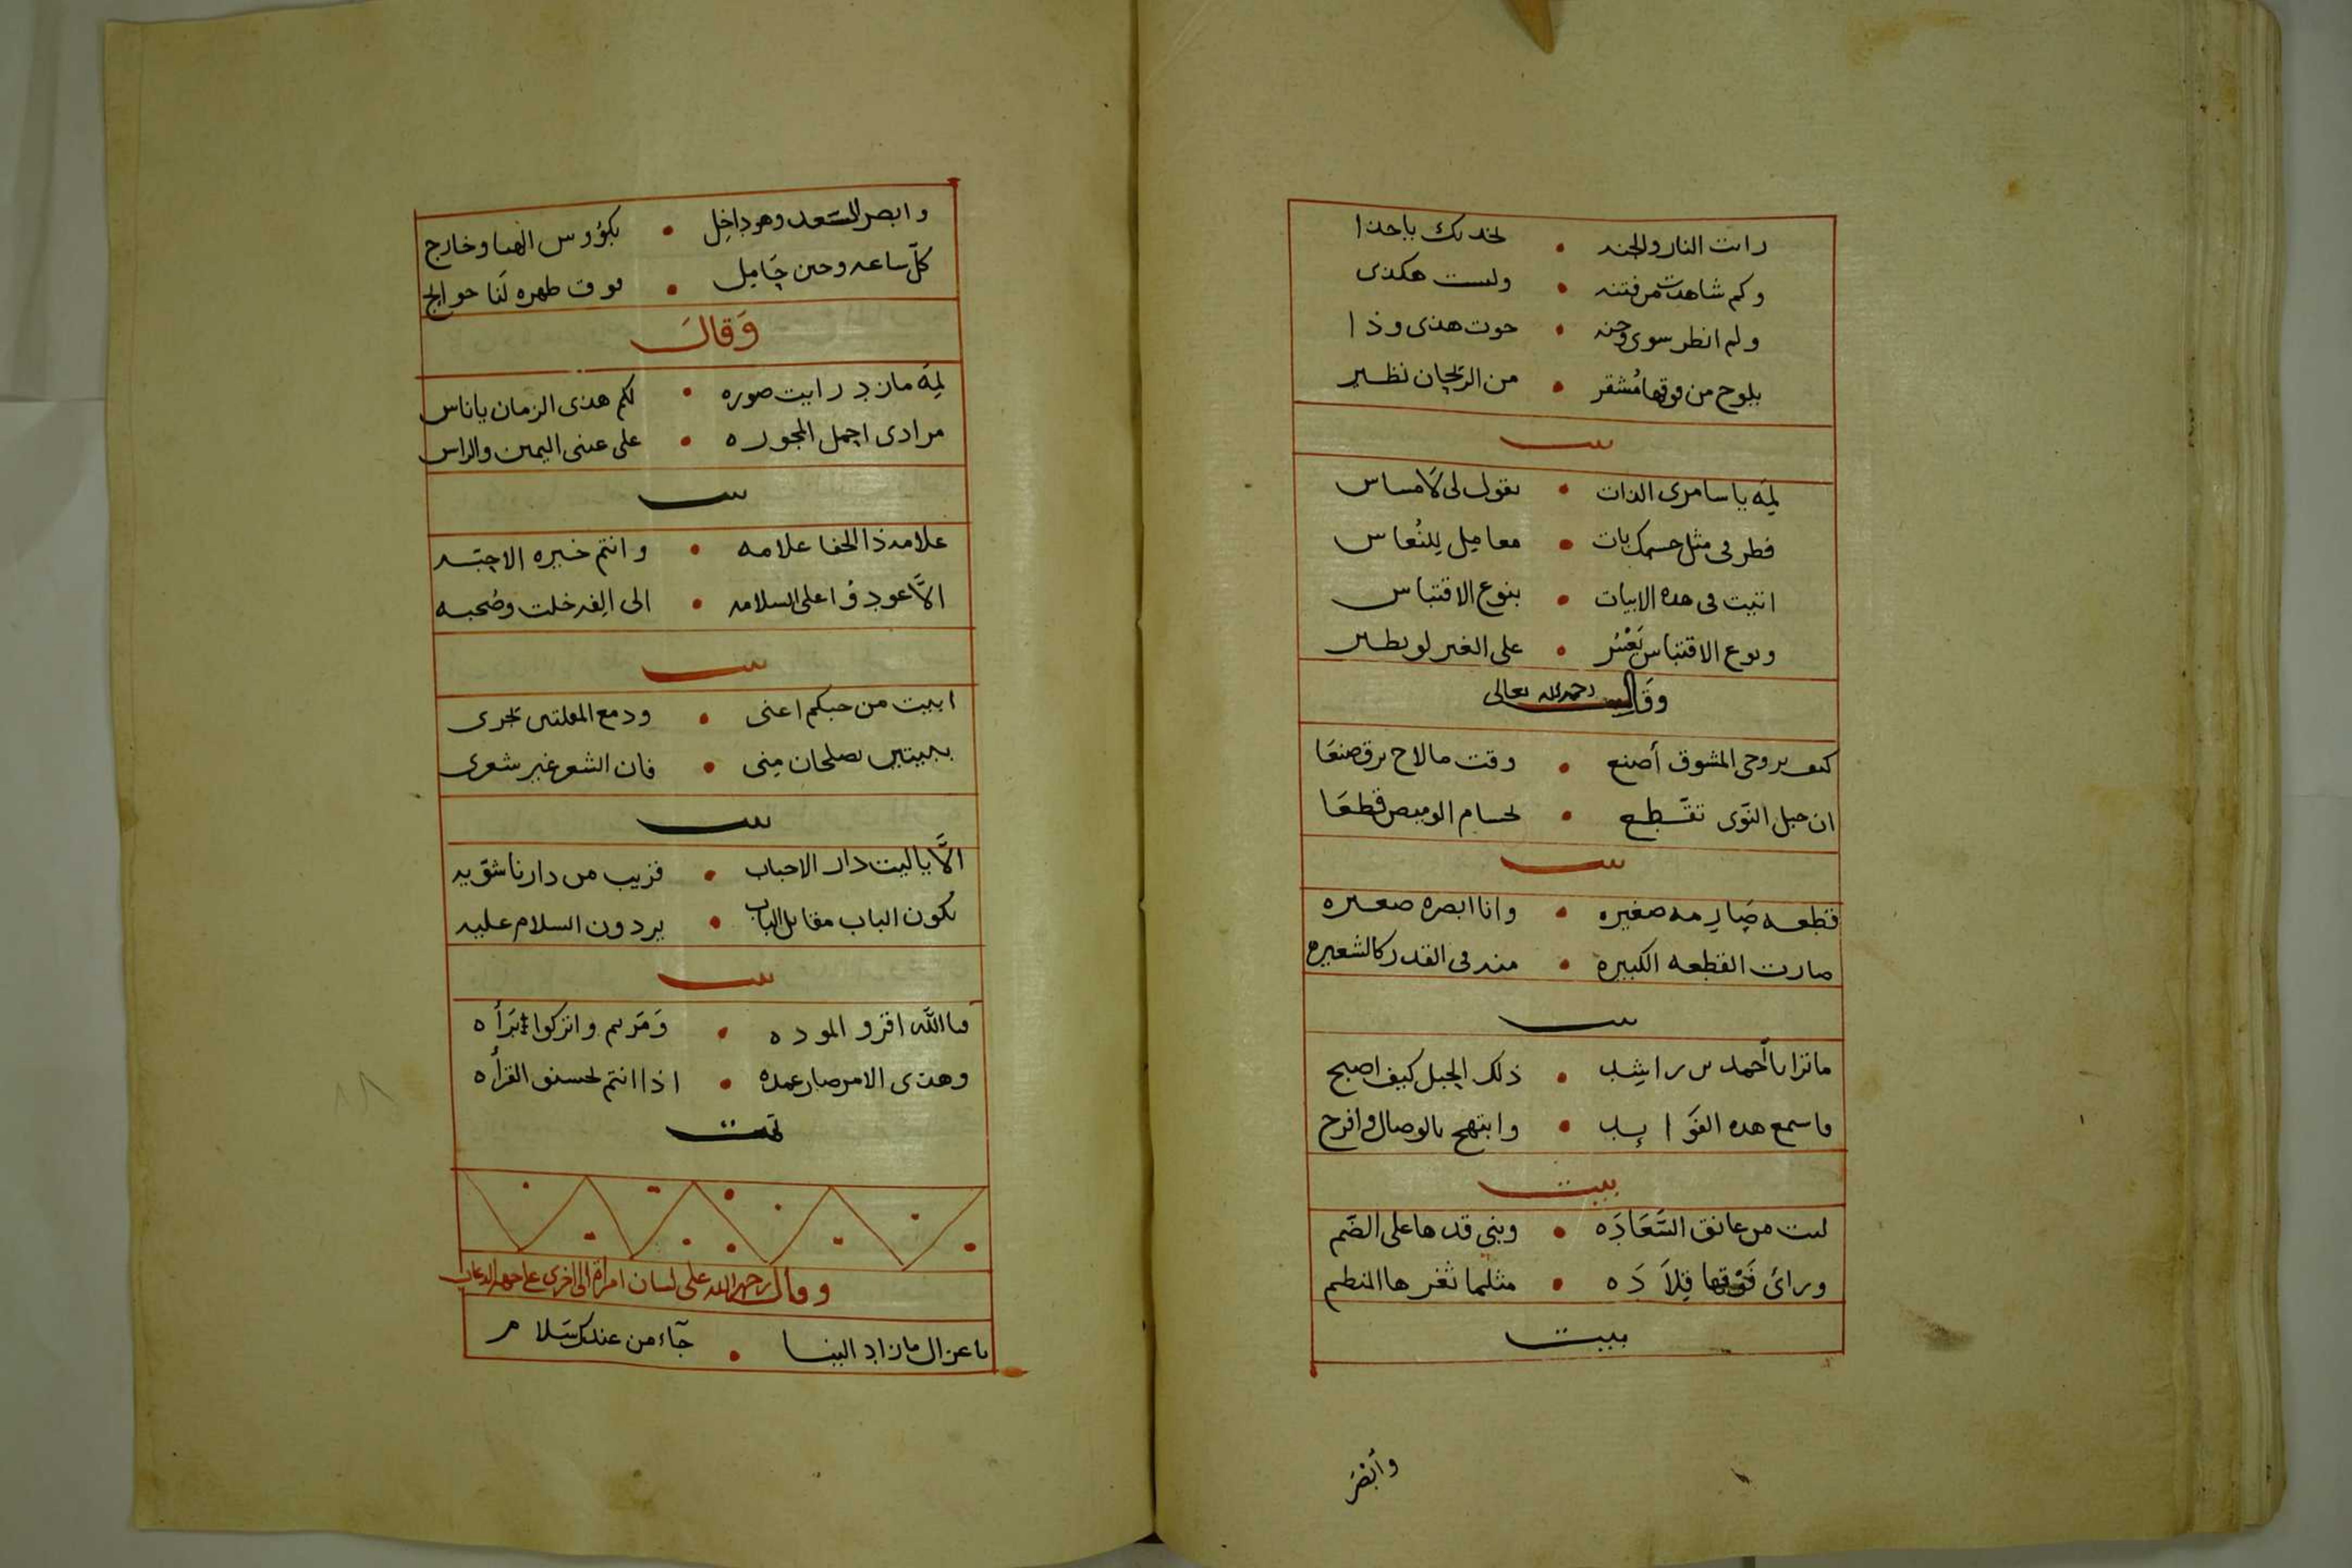 رات النار والجنه • لخديك باحذا
وكم شاهدت من فتنه • وليست هكذى
ولم انظر سوى وجنه • حوت هذى وذا
يلوح من فوقها مُشقر • من الريحان نظير
بيت
لِمَه ياسامرى الذات • تقول لى لامساس
فطرفى مثل جسمك بات • معاميل للنُعاس
اتيت فى هده الابيات • بنوع الاقتباس
ونوع الاقتباس يَعْسُر • على الغير لو يطير
وقال رحمه الله تعالى
كيف يروحى المشوق أصنع • وقت مالاح برق صنعَا
ان حبل النَوى تقَطع • لحسام الوميض قطعَا
بيت
قطعه صَارمه صغيره • وانا ابصره صغيره
صارت القطعه الكبيره • منه فى القدر كالشعيره
بيت
ماترا ياأحمد بن راشِد • ذلك الجبل كيف اصبح
فاسمع هده الفَوايد • وابتهج بالوصال وافرح
بيت
ليت من عانق السَّعَادَه • وبنى قدها على الضَم
ورائ فَوْقها قِلاَدَه • مثلما ثغرها المنظم
بيت
وأَبْصَر
وابصر السَعد وهو داخِل • بكؤوس الهنا وخارج
كلّ ساعه وحين حَامِل • فوق ظهره لنَا حوايج
وَقالَ
لِمَه مازد رايت صوره • لكم هذى الزمان ياناس
مرادى احمل المجوره • على عينى اليمين والراس
بيت
علامه ذا الجفا علامه • وانتم خيره الاحبّه
الاَّ عودوُا على السلامه • الى الِفه خلت وصُحبه
بيت
ابيت من حبكم اعنى • ودمع المقلتين تجرى
ببيتين يصلحان مِنى • فان الشعر غير شعرى
بيت
الاَّ ياليت دار الاحباب • قريب من دارنا شوّيه
يكون الباب مقابل الباب • يردون السلام عليه
بيت
فاالله اقرو الموده • وَمَريم واتركوا تبَرأه
وهذى الامر صار عمده • اذا انتم تحسنو القرأه
تمت
وقال رحمه الله على لسان امراة الى اخرى على جهه الدعاب
ياغزال مازاد الينا • جآء من عندك سَلام